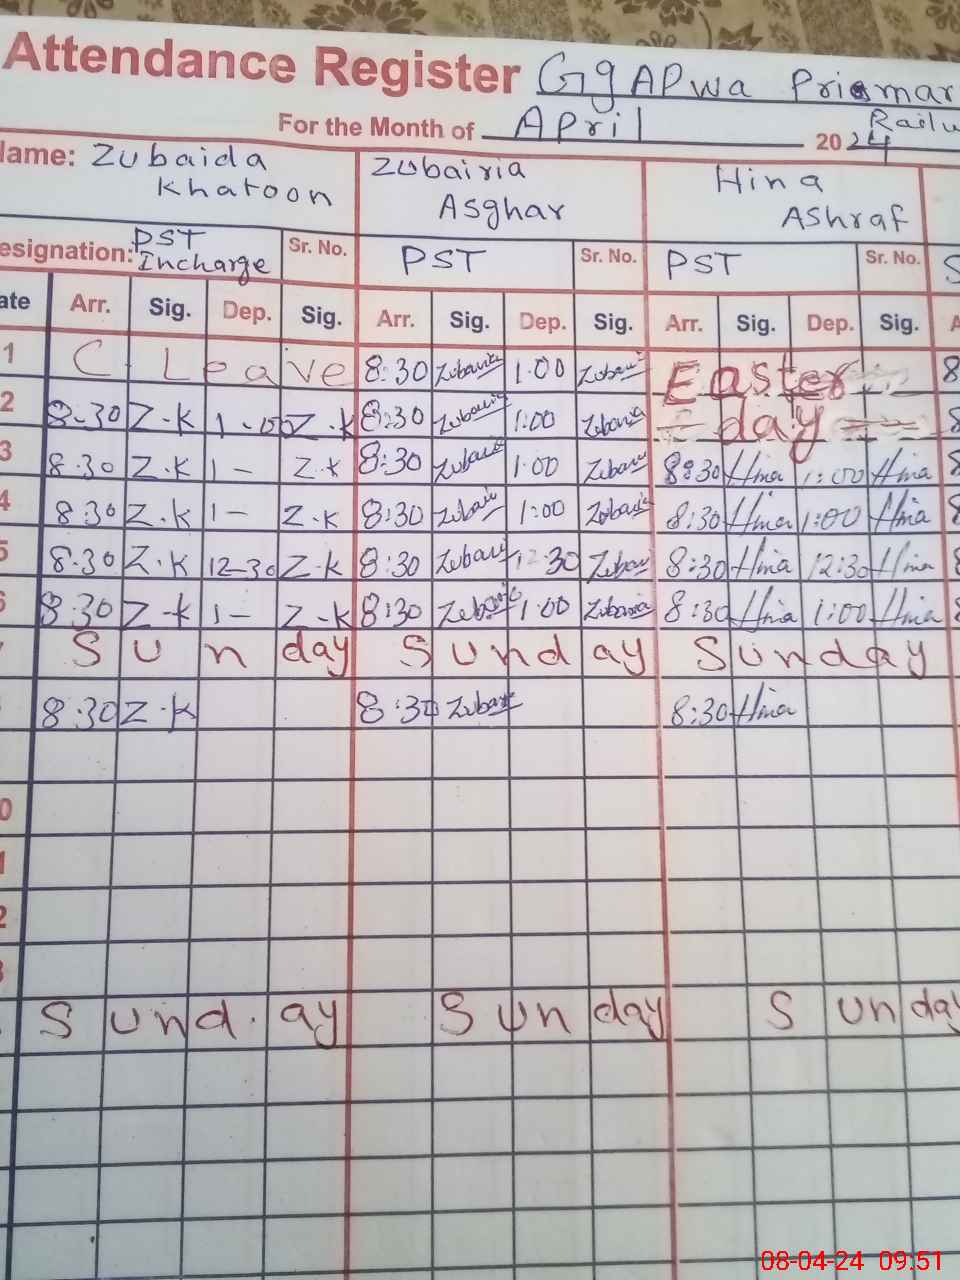 Attendance Register GgAPwa Primar
For the Month of April 2024 Railw
lame: Zubaida Khatoon Zubairia Asghar Hina Ashraf
esignation: PST Incharge Sr. No. PST Sr. No. PST Sr. No. S
ate Arr. Sig. Dep. Sig. Arr. Sig. Dep. Sig. Arr. Sig. Dep. Sig. A
1 C Leave 8:30 1:00 Easter 8
2 8-30 Z.K Z.K 8:30 1:00 day 8
3 8.30 Z.K 1- Z.K 8:30 1:00 8:30 Hina 1:00 Hina 8
4 8.30 Z.K 1- Z.K 8:30 1:00 8:30 Hina 1:00 Hina 8
5 8.30 Z.K 12-30 Z-K 8:30 12:30 8:30 Hina 12:30 Hina 8
6 8.30 Z-K 1- Z-K 8:30 1:00 8:30 Hina 1:00 Hina 8
Sunday Sunday Sunday
8.30 Z.K 8:30 8:30 Hina
0
1
2
3
Sund.ay Sunday Sunday
08-04-24 09:51